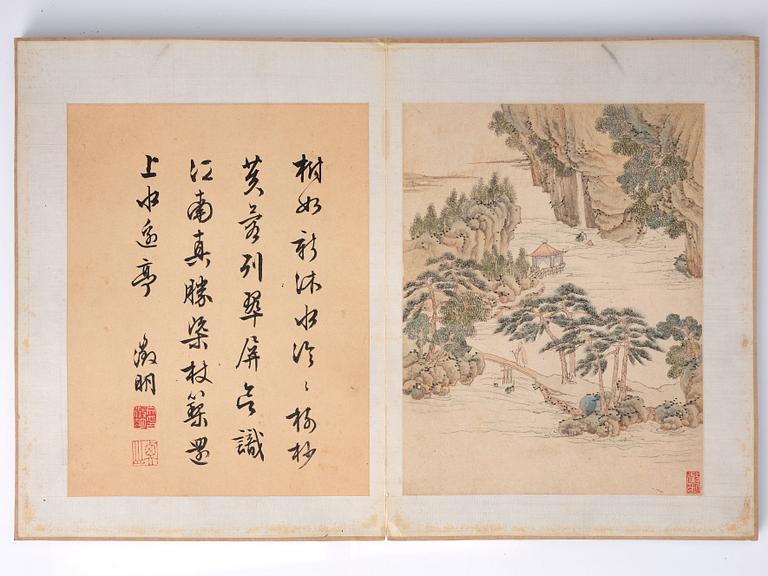 樹如新沐水泠〻樹杪
芙蓉列翠屏識
江南真勝槩杖藜還
上水邊亭
徵明